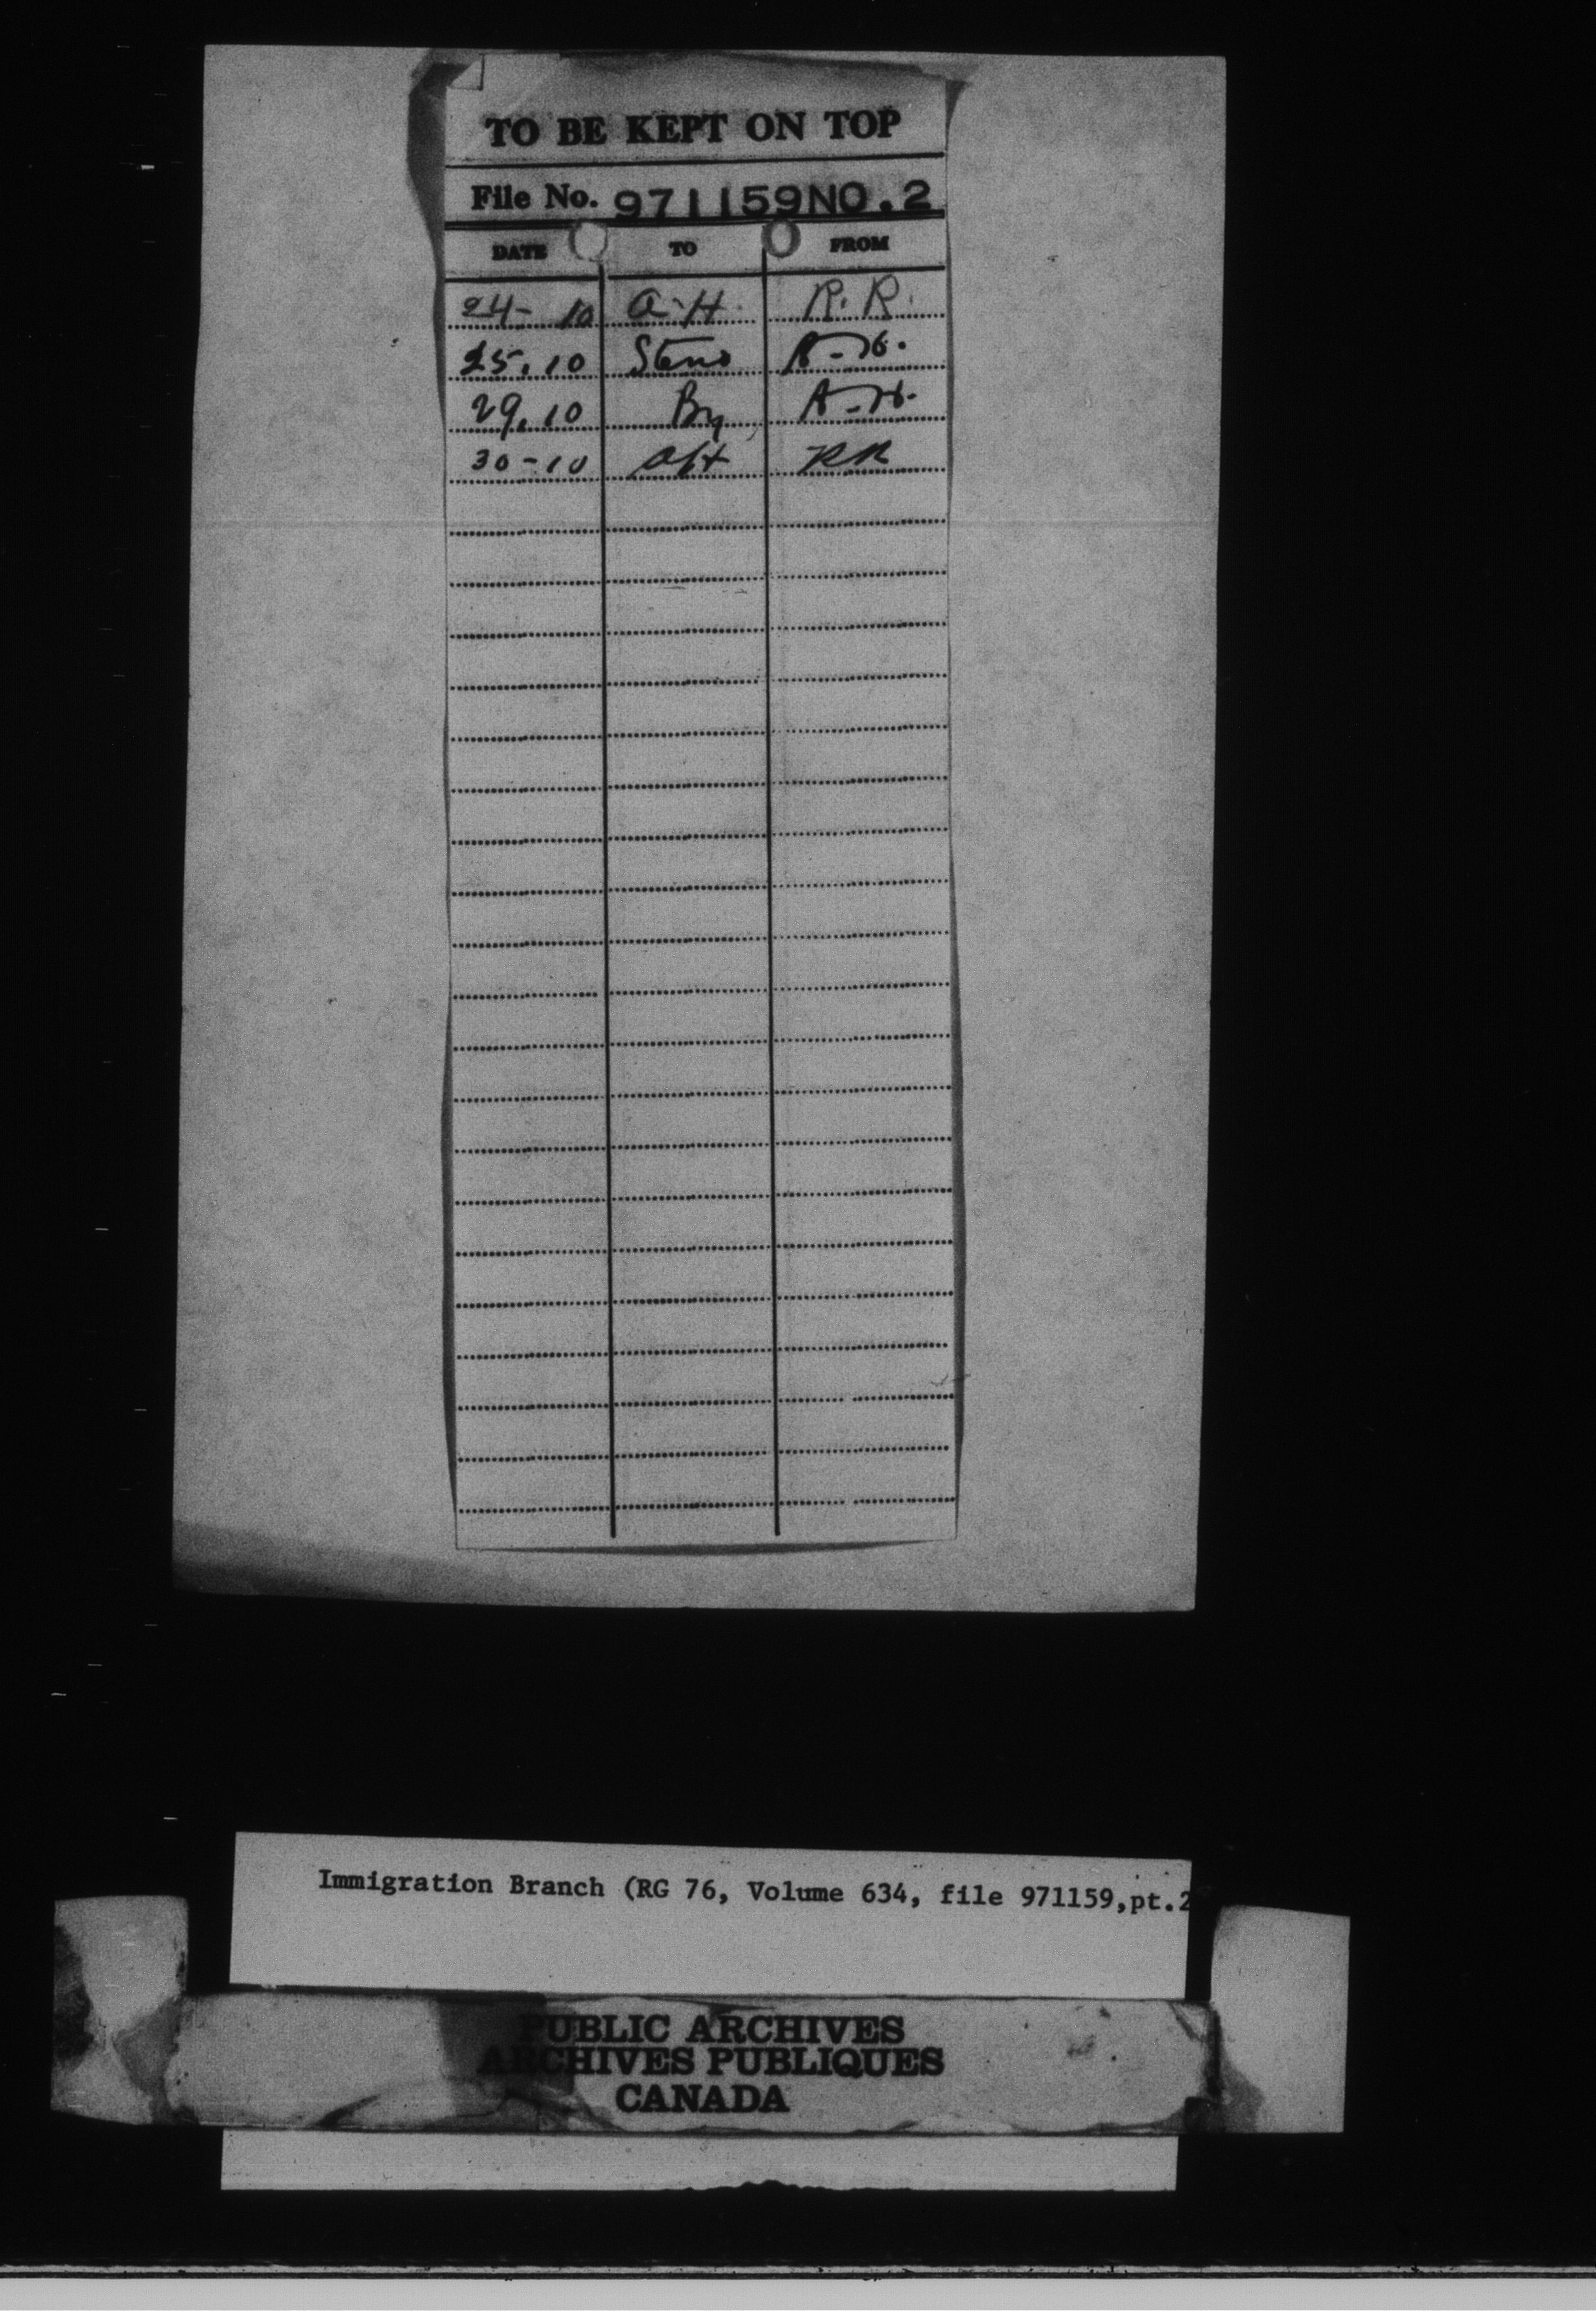 TO BE KEPT ON TOP
File No. 971159NO.2
DATE TO FROM
24-10 A-H R.R.
25.10 Steno A-H.
29.10 A-H.
30-10 RR
Immigration Branch (RG 76, Volume 634, file 971159,pt.2
PUBLIC ARCHIVES
ARCHIVES PUBLIQUES
CANADA